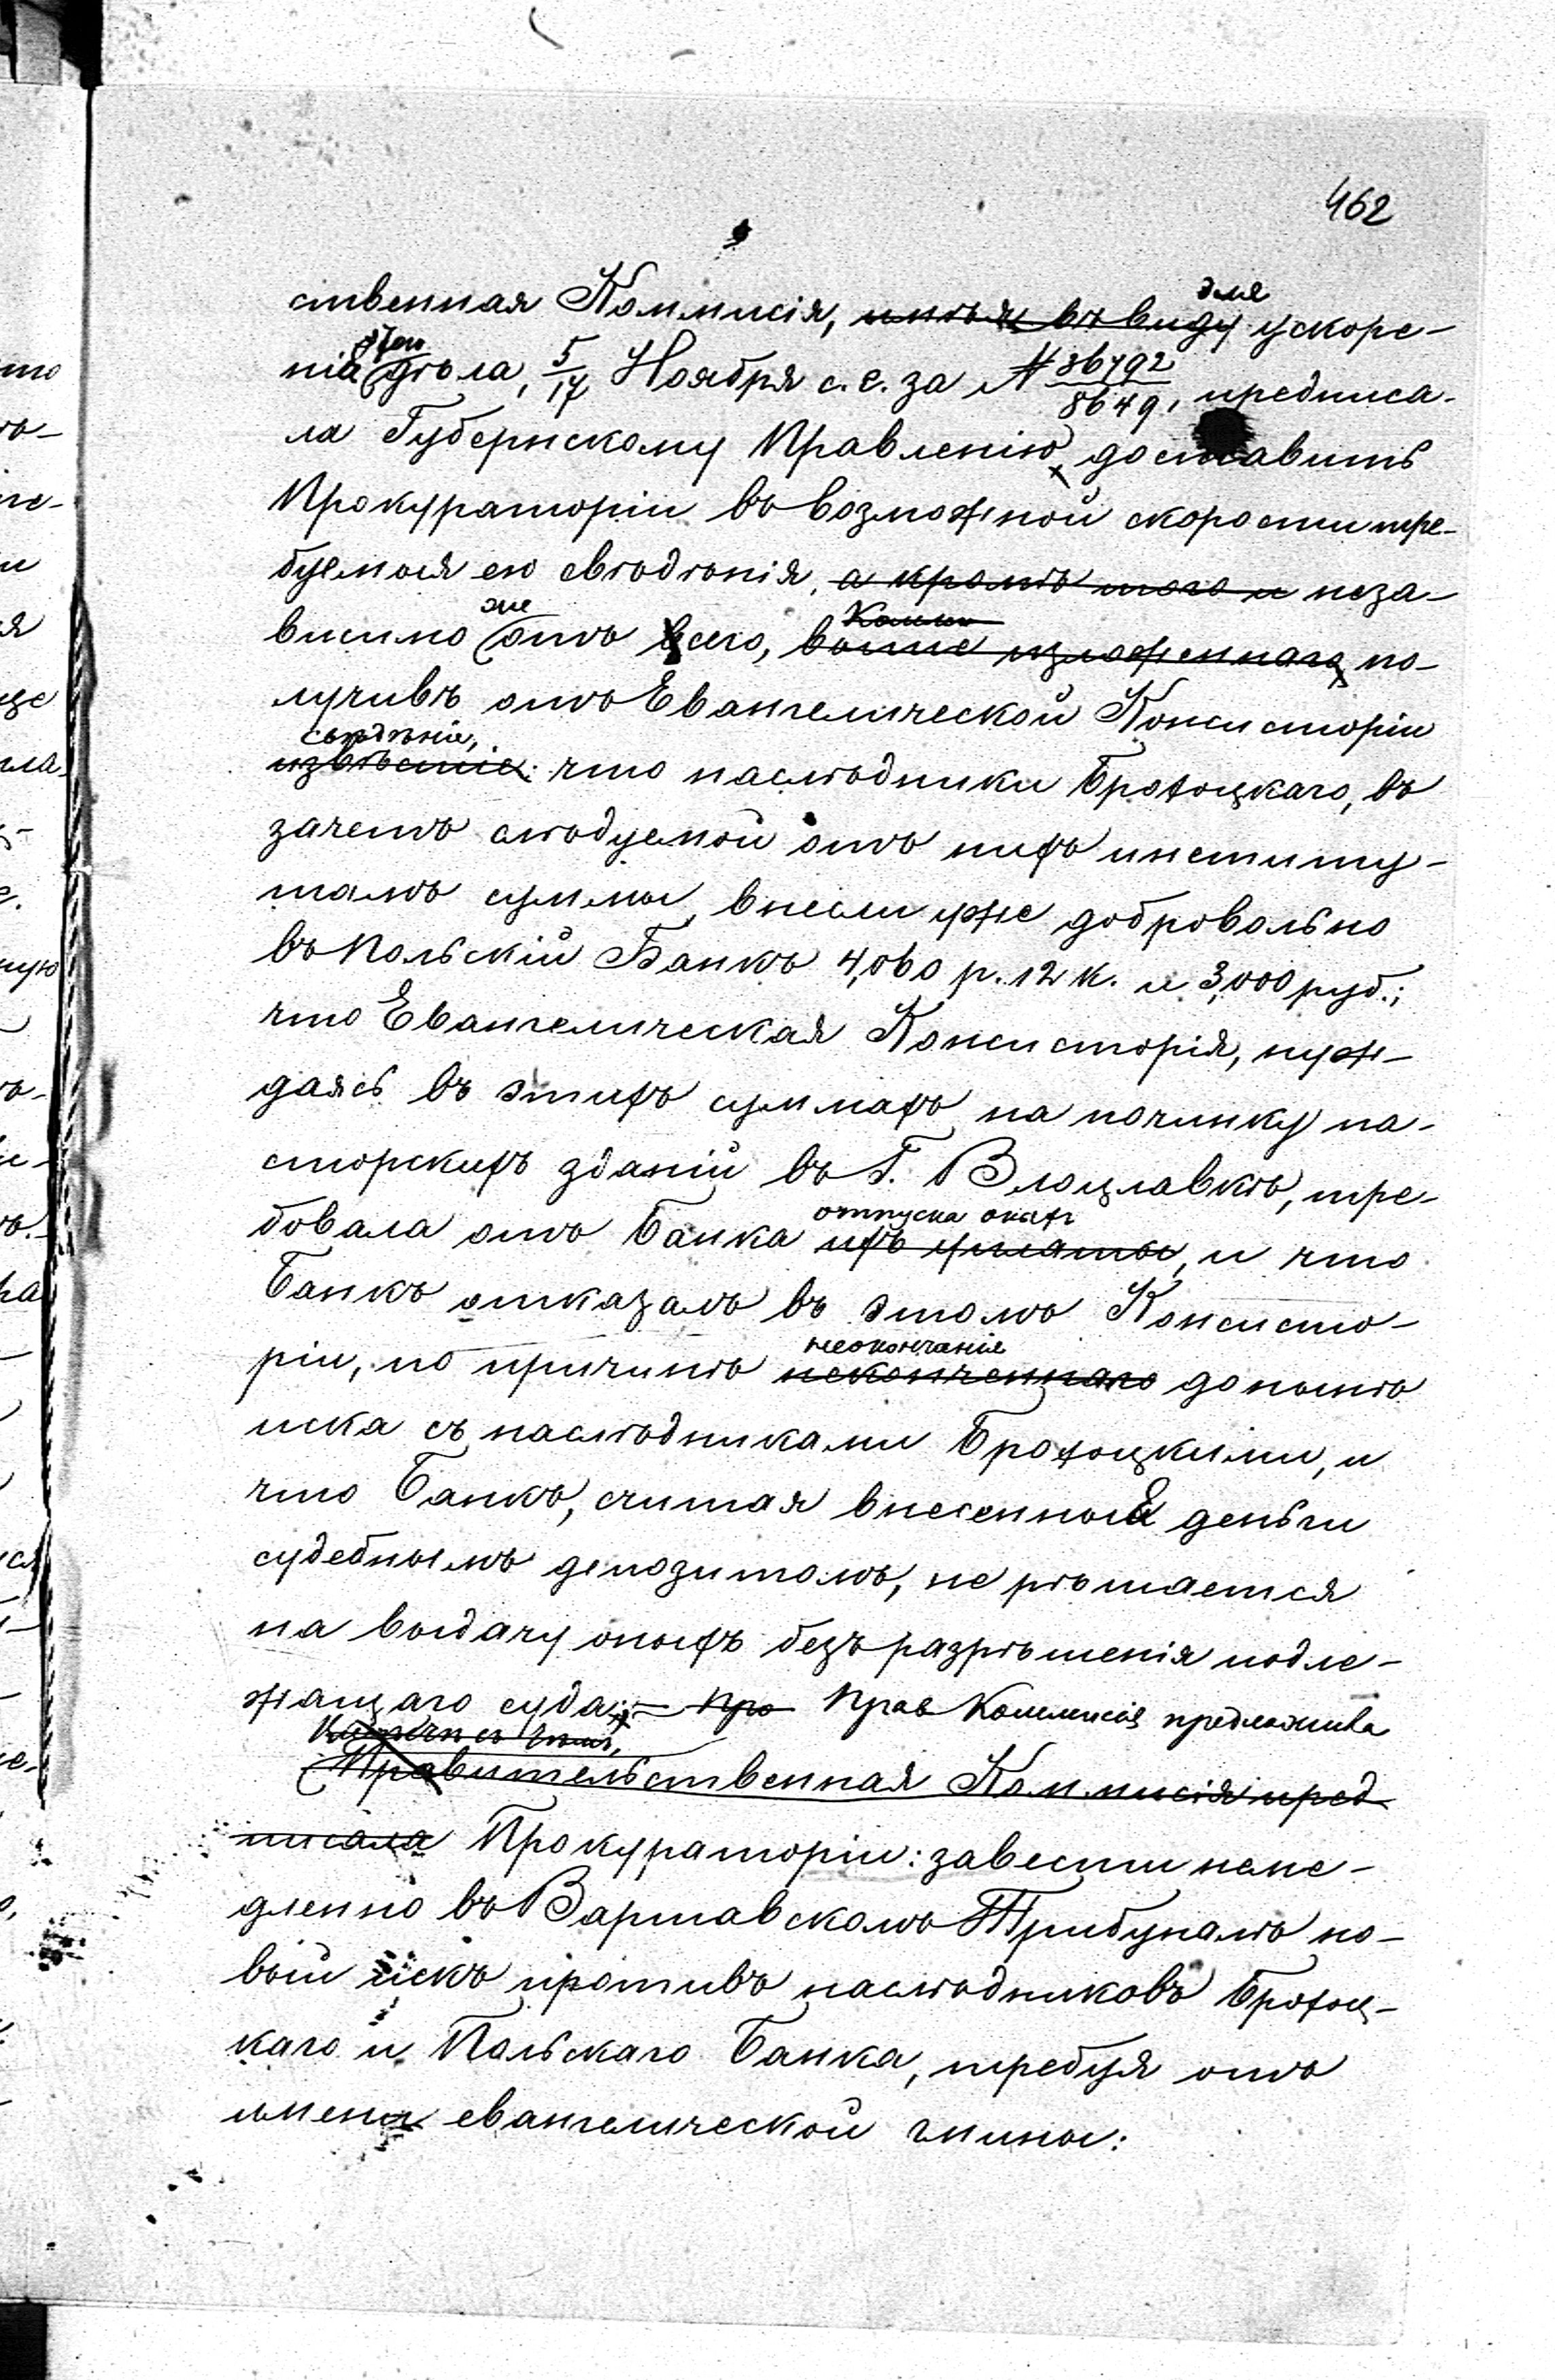 462
ственная Коммисія, имѣя въ виду для ускоре-
нія дѣла, 5/17 Ноября с. г. за № 36792/8649, предписа-
ла Губернскому Правленію доставить
Прокураторіи въ возможной скорости тре-
буемыя ею свѣдѣнія, а кромѣ того и неза-
висимо же отъ сего, выше изложеннаго по-
лучивъ отъ Евангелической Консисторіи
свѣдѣніе,
извѣстіе: что наслѣдники Брохоцкаго, въ
зачетъ слѣдуемой отъ нихъ институ-
тамъ суммы, внесли уже добровольно
въ Польскій Банкъ 4,060 р. 12 к. и 3,000 руб.;
что Евангелическая Консисторія, нуж-
даясь въ этихъ суммахъ на починку па-
сторскихъ зданій въ Г. Влоцлавкѣ, тре-
отпуска оныхъ
бовала отъ Банка ихъ уплаты, и что
Банкъ отказалъ въ этомъ Консисто-
неокончанія
ріи, по причинѣ неконченнаго донынѣ
иска съ наслѣдниками Брохоцкими, и
что Банкъ, считая внесенныя деньги
судебнымъ депозитомъ, не рѣшается
на выдачу оныхъ безъ разрѣшенія подле-
жащаго суда; – про Прав Коммисія предложила
Правительственная Коммисія пред
писала Прокураторіи: завести неме-
дленно въ Варшавскомъ Трибуналѣ но-
вый искъ противъ наслѣдниковъ Брохоц-
каго и Польскаго Банка, требуя отъ
имени евангелической гмины: